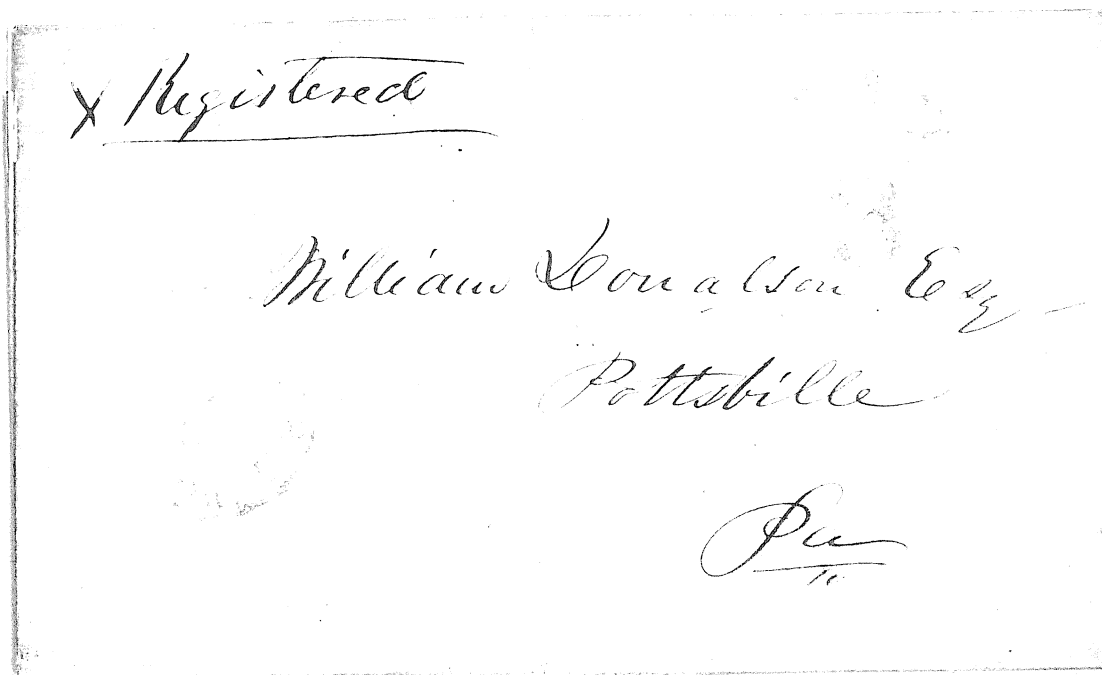 X Registered
William Donalson Esq
Pottsville
Pa